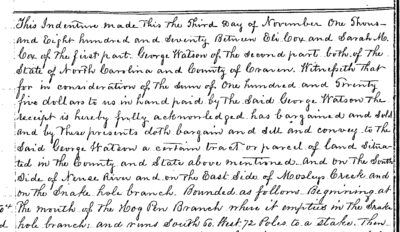 This Indenture made this the Third Day of November One Thous-
and Eight hundred and Seventy Between Eli Cox and Sarah M.
Cox of the first part. George Watson of the second part both of the
State of North Carolina and County of Craven. Witnesseth that
for in consideration of the sum of One hundred and Twenty
five dollars to us in hand paid by the Said George Watson the
receipt is hereby fully acknowledged has bargained and sold
and by These presents doth bargain and sell and convey to the
Said George Watson a certain tract or parcel of land Situa-
ted in the County and State above mentioned. and on the South
Side of Neuse River and on the East Side of Mosleys Creek and
on the Snake hole branch. Bounded as follows. Beginning at
the mouth of the Hog Pen Branch where it empties in the Snake
hole branch; and runs South 60. West 72 Poles to a stake. Then